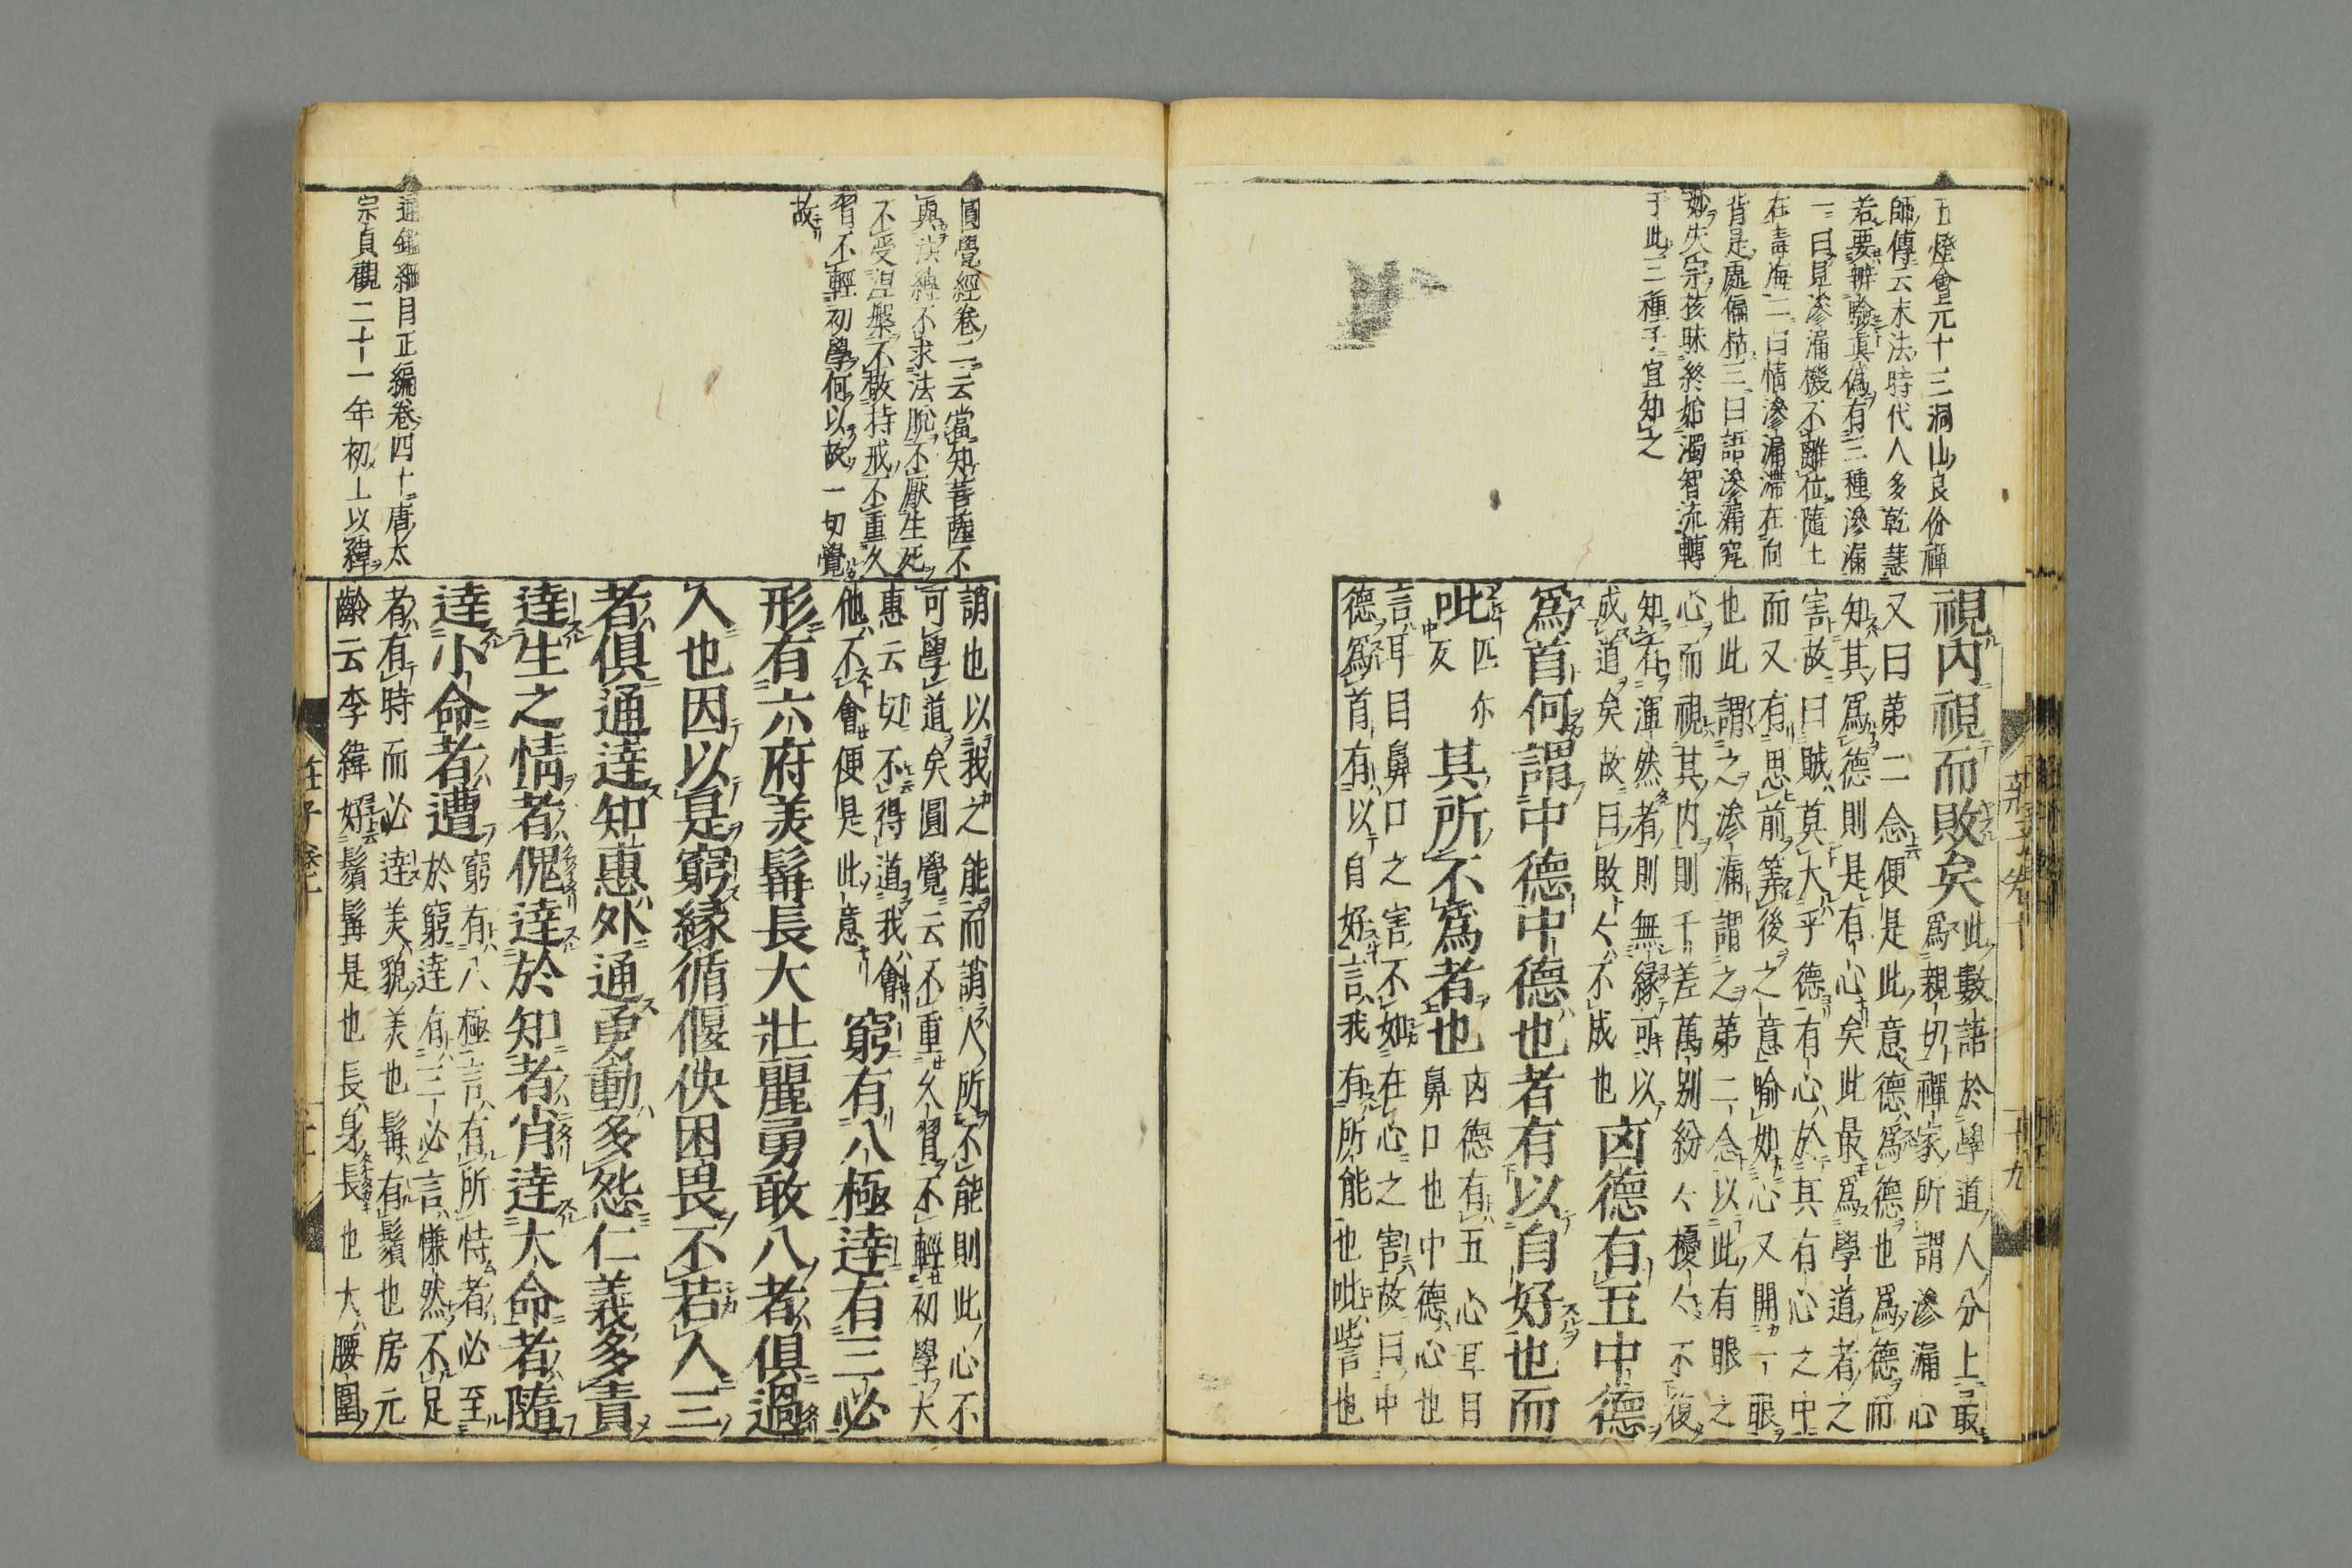 五燈會元十三洞山良份禪
師傳云末法時代人多乾慧
若要辨驗真偽有三種滲漏
一曰見滲漏機不離位隨土
在毒海二曰情滲漏滯在向
背是處偏枯三曰語滲漏究
妙失宗孩昧終始濁智流轉
于此三種子宜知之
視內視而敗矣此數語於學道人分上最
爲親切禪家所謂滲漏心
又曰第二念便是此意德爲德也爲德而
知其爲德則是有心矣此最爲學道者之
害故曰賊莫大乎德有心於其有心之中
而又有思前筭後之意喻如心又開一眼
也此謂之滲漏謂之第二念以此有眼之
心而視其內則千差萬別紛々擾々不復
知有渾然者則無緣可以
成道矣故曰敗々不成也凶德有五中德
爲首何謂中德中德也者有以自好也而
吡匹尓中反其所不爲者也內德有五心耳目鼻口也中德心也
言耳目鼻口之害不如在心之害故曰中
德爲首有以自好言我有所能也吡訾也
莊子卷十
二十九
圓覺經卷二云當知菩薩不
與法縛不求法脫不厭生死
不愛涅槃不敬持戒不重久
習不輕初學何以故一切覺
故
通鑑綱目正編卷四十唐太
宗貞觀二十一年初上以緯
謂也以我之能而誚人所不能則此心不
可學道矣圓覺云不重久習不輕初學大
惠云切不得道我會
他不會便是此意窮有八極達有三必
形有六府美髯長大壯麗勇敢八者俱過
人也因以是窮緣循偃佒困畏不若人三
者俱通達知惠外通勇動多怨仁義多責
達生之情者傀達於知者肖達大命者隨
達小命者遭窮有八極言有所恃者必至於窮達有三必言慊然不足
者有時而必達美貌美也髯有鬚也房元
齡云李緯好鬚髯是也長身長也大腰圍
莊子卷十